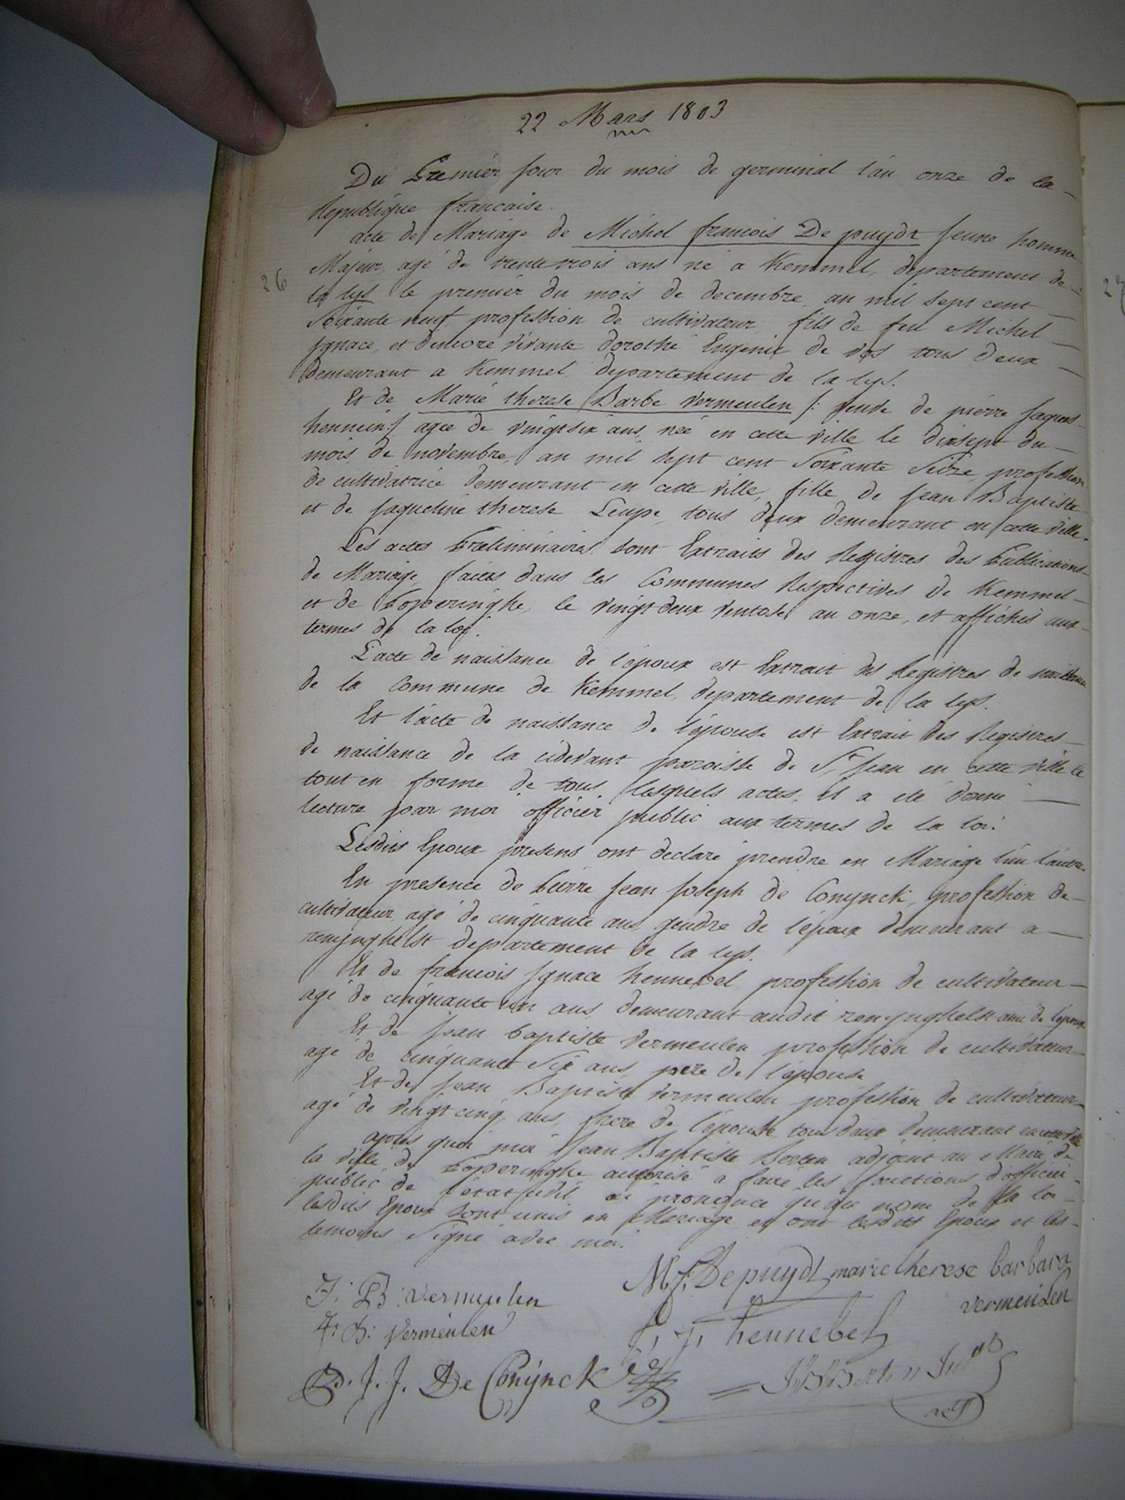 22 Mars 1803
Du Premier Jour du mois de germinal l'an onze de la
Republique francaise.
acte de Mariage de Michel francois De puydt Jeune homme
26
Majeur, agé de trente trois ans né a Kemmel, departement de
la lys le premier du mois de decembre an mil sept cent
Soixante neuf profession de cultivateur, fils de feu Michel
Ignace, et encore vivante dorothé Eugenie de vos tous deux
demeurant a Kemmel departement de la lys.
Et de Marie therese Barbe Vermeulen /: veuve de pierre Jaques
hennein :/ agée de vingt six ans, née en cette ville le dixsept du
mois de novembre, an mil sept cent Soixante Seize, profession
de cultivatrice demeurant en cette ville, fille de Jean Baptiste
et de Jaqueline therese Leupe, tous deux demeurant en cette ville.
Les actes Preliminaires sont Extraits des Registres des Publications
de Mariage faites dans les Communes Respectives de Kemmel
et de Poperinghe, le vingt deux ventose an onze, et affichés aux
termes de la loi.
L'acte de naissance de l'époux est Extrait des Registres de naissance
de la Commune de Kemmel, departement de la lys.
Et l'acte de naissance de l'épouse est Extrait des Registres
de naissance de la cidevant paroisse de St Jean en cette ville le
tout en forme de tous lesquels actes, il a été donné
lecture par moi officier public aux termes de la loi.
Lesdits Epoux presens ont declaré prendre en Mariage l'un l'autre.
En presence de Pierre Jean Joseph de Conynck, profession de
cultivateur, agé de cinquante ans, gendre de l'époux demeurant a
renynghelst departement de la lys.
Et de francois Ignace hennebel profession de cultivateur
agé de cinquante un ans demeurant audit renynghelst ami de l'époux
Et de Jean baptiste Vermeulen profession de cultivateur
agé de cinquante Six ans, pere de l'épouse
Et de Jean Baptiste vermeulen profession de cultivateur
agé de vingt cinq ans, frere de l'épouse tous deux demeurant en cette ville
apres quoi moi Jean Baptiste Berten adjoint au Maire de
la ville de Poperinghe autorisé a faire les fonctions d'officier
public de l'etat civil ai prononcé qu'au nom de la loi
lesdits Epoux sont unis en Mariage et ont lesdits Epoux et les
temoins Signé avec moi.
M. f. Depuydt marie therese barbara
vermeulen
J: B: vermeulen
J: B: vermeulen
f: J: hennebel
P. J. J. De Conynck
JB Berten